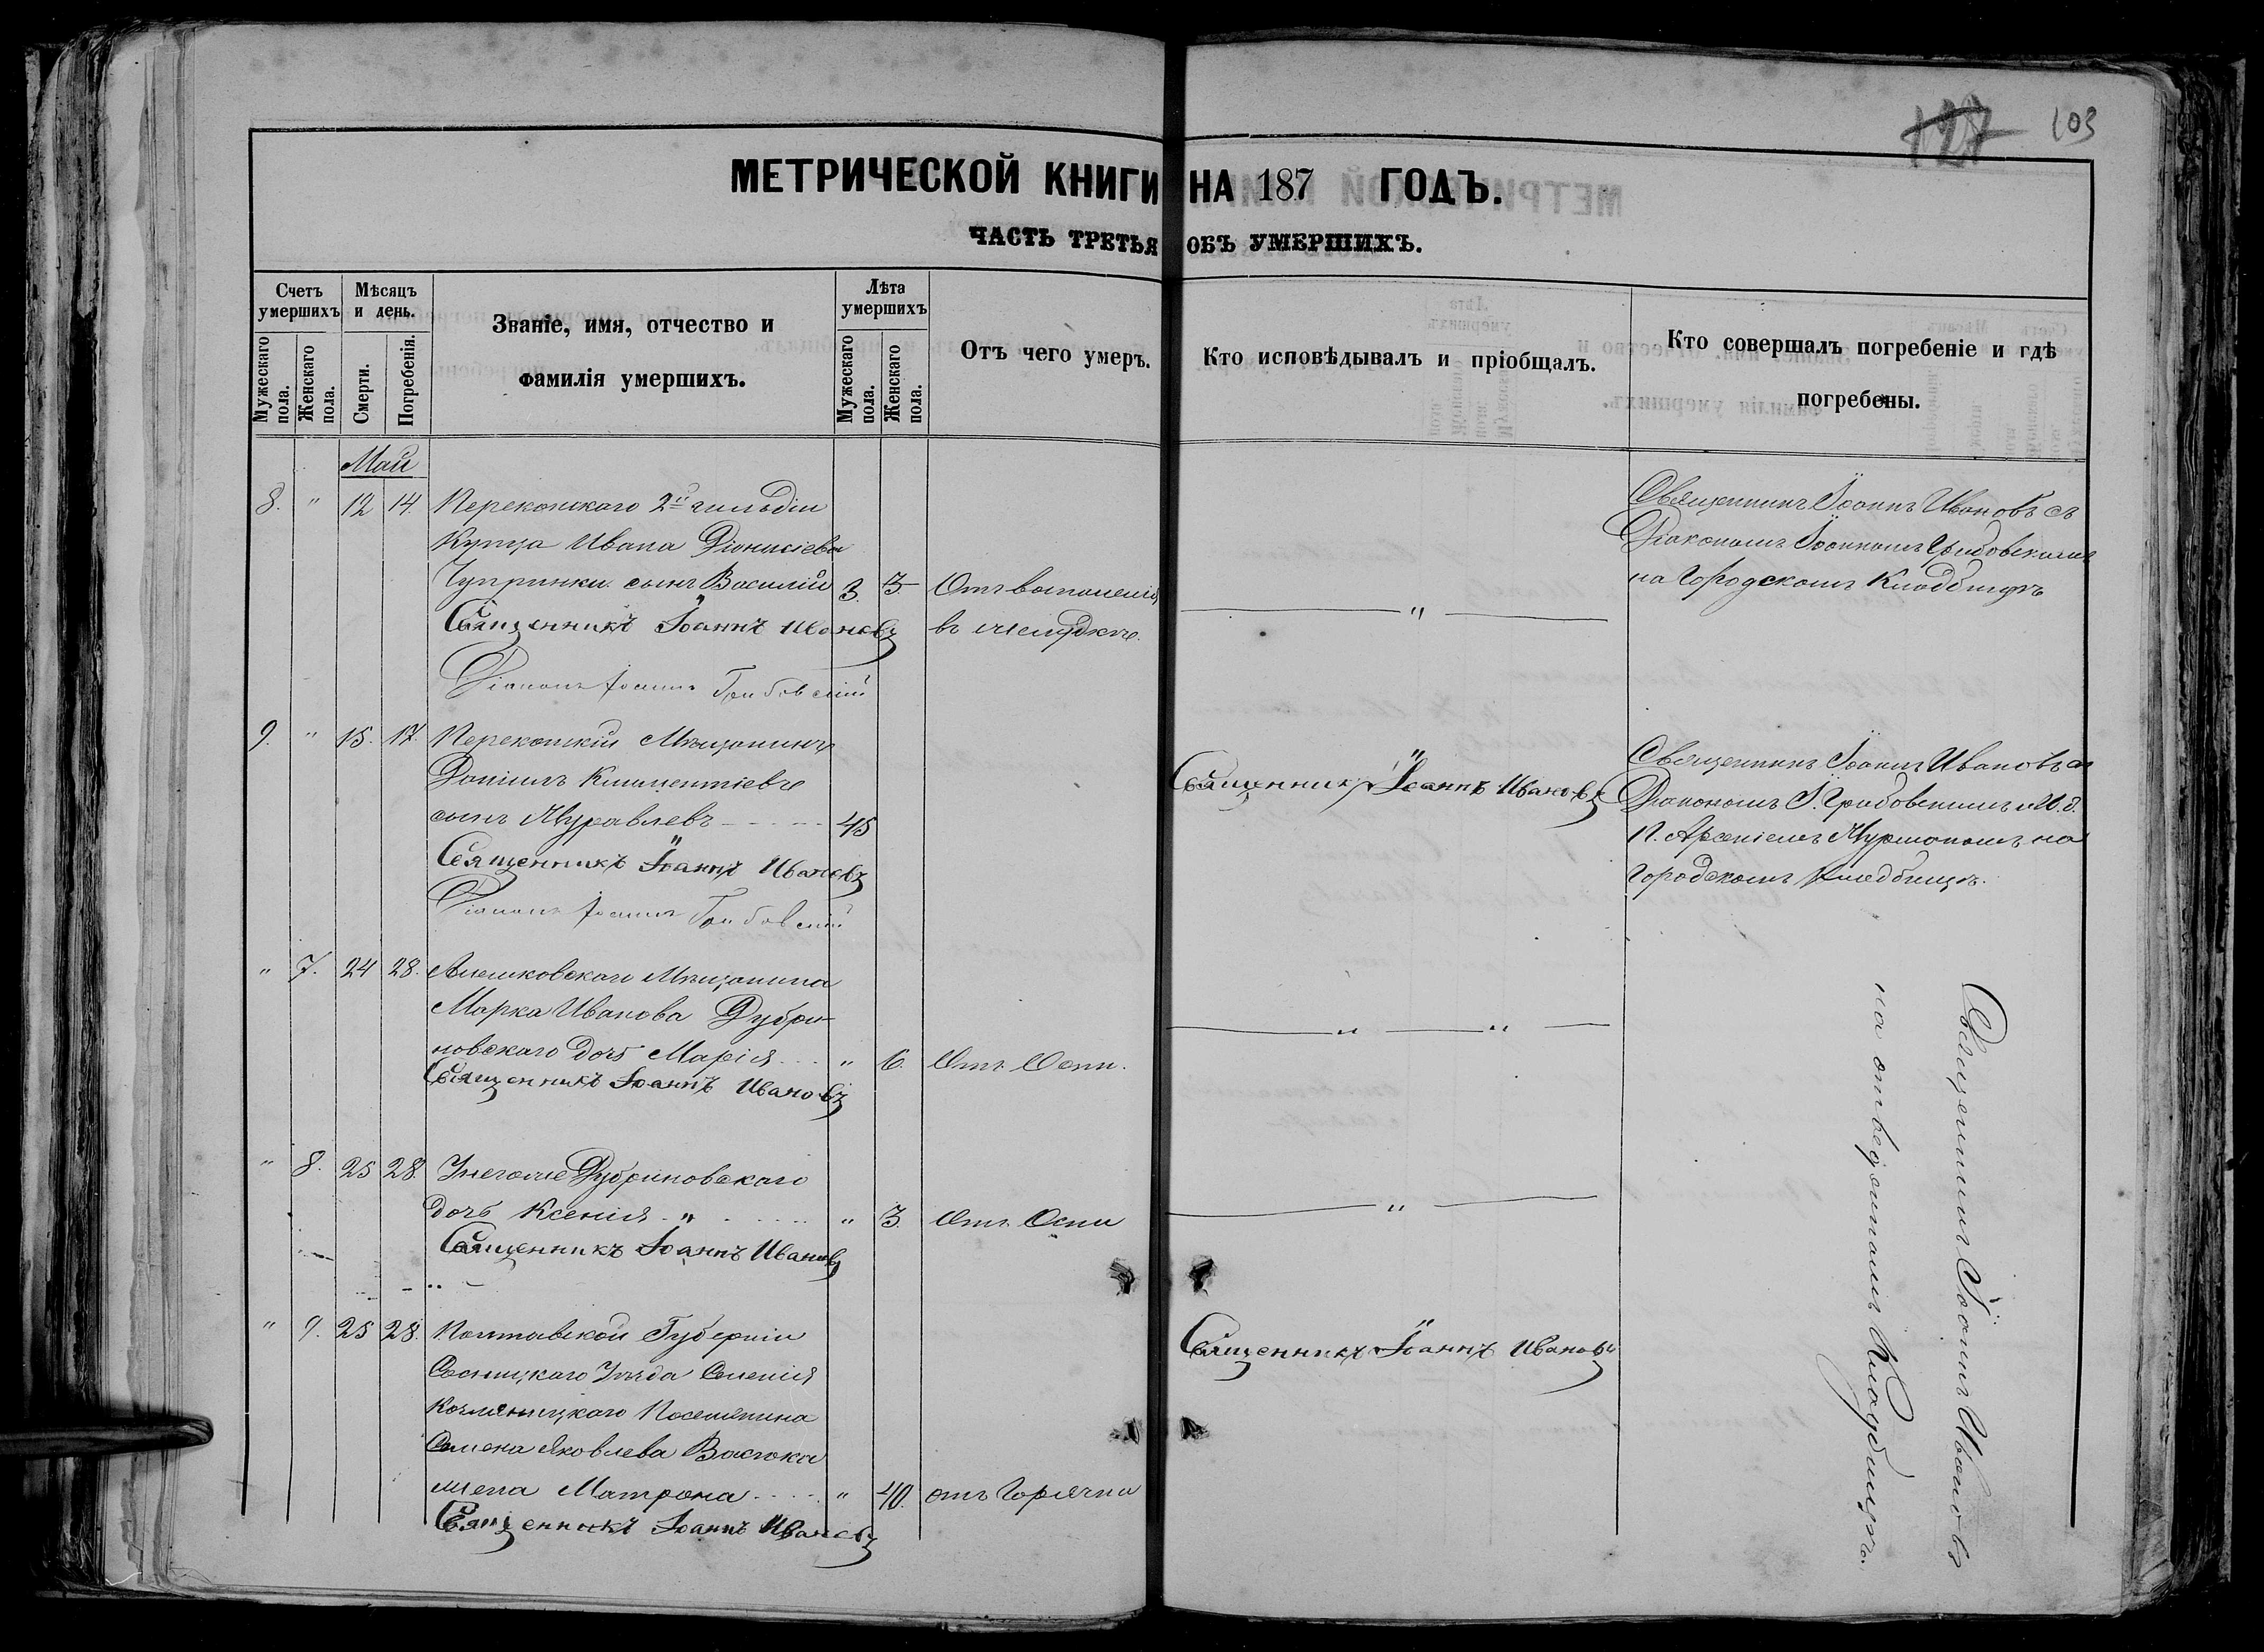 127 103
МЕТРИЧЕСКОЙ КНИГИ НА 187 ГОДЪ.
ЧАСТЬ ТРЕТЬЯ ОБЪ УМЕРШИХЪ.
Счетъ умершихъ
Мужескаго пола.
Женскаго пола.
Мѣсяцъ и день.
Смерти.
Погребенія.
Званіе, имя, отчество и
фамилія умершихъ.
Лѣта умершихъ
Мужескаго пола.
Женскаго пола.
Отъ чего умеръ.
Кто исповѣдывалъ и пріобщалъ.
Кто совершалъ погребеніе и гдѣ
погребены.
Май
8. " 12 14. Перекопскаго 2й гильдіи
Купца Ивана Діонисіева
Чупринки сынъ Василій 3. 3 Отъ воспаленія
Священникъ Іоаннъ Ивановъ въ желудкѣ.
Діаконъ Іоаннъ Грибовскій
"
Священникъ Іоаннъ Ивановъ съ
Діакономъ Іоанномъ Грибовскимъ
на Городскомъ Кладбищѣ
9. " 15. 17. Перекопскій Мѣщанинъ
Даніилъ Климентіевъ
сынъ Журавлевъ 45
Священникъ Іоаннъ Ивановъ
Діаконъ Іоаннъ Грибовскій
Священникъ Іоаннъ Ивановъ
Священникъ Іоаннъ Ивановъ съ
Діакономъ І. Грибовскимъ и И. д.
П. Арсеніемъ на
Городскомъ Кладбищѣ.
" 7. 24 28. Алешковскаго Мѣщанина
Марка Иванова Дубри-
новскаго дочь Марія " 6. Отъ Оспи.
Священникъ Іоаннъ Ивановъ
" "
" 8. 25 28. Унегоже Дубриновскаго
дочь Ксенія " " 3. Отъ Оспи
Священникъ Іоаннъ Ивановъ
"
" 9. 25 28. Полтавской Губерніи
Уѣзда Селенія
Поселянина
Семена Яковлева
жена Матрона " 40. отъ Горячки
Священникъ Іоаннъ Ивановъ
Священникъ Іоаннъ Ивановъ
Священникъ Іоаннъ Ивановъ
на отведенномъ Кладбищѣ.